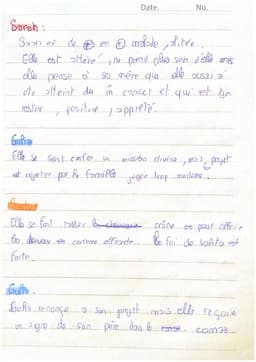 Date. No.
Sarah :
Sarah est de ⊕ en ⊕ malade, alitée.
Elle est altéré, ne prend plus soin d'elle mais
elle pense à sa mère qui elle aussi a
été atteint du cancer et qui est
rester, positive, apprêté.
Giulia
Elle se sent confier un mission divine, mais projet
est rejeter par la famille jugée trop moderne.
Elle se fait raser crâne pour offrir
les cheveux en comme offrande. la foi de Lalita est
forte.
Giulia.
Giulia renonce a son projet mais elle reçoit
un signe de son père dans le coma.